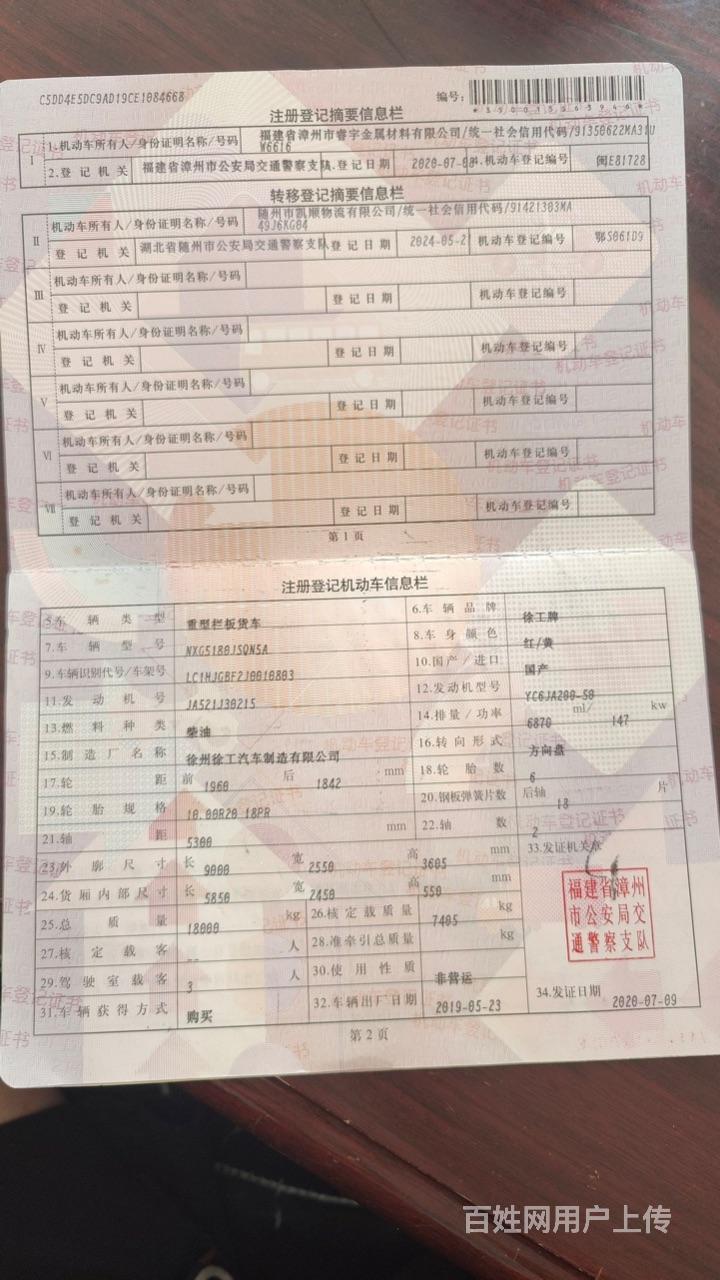 C5DD4E5DC9AD19CE1084668
编号:
注册登记摘要信息栏
I
1.机动车所有人/身份证明名称/号码 福建省漳州市睿宇金属材料有限公司/统一社会信用代码/91350622MA31U
W6616
2.登记机关 福建省漳州市公安局交通警察支队 3.登记日期 2020-07-09 4.机动车登记编号 闽E81728
转移登记摘要信息栏
II
机动车所有人/身份证明名称/号码 随州市凯顺物流有限公司/统一社会信用代码/91421303MA
49J6KG04
登记机关 湖北省随州市公安局交通警察支队 登记日期 2024-05-2 机动车登记编号 鄂S061D9
III 机动车所有人/身份证明名称/号码
登记机关 登记日期 机动车登记编号
IV 机动车所有人/身份证明名称/号码
登记机关 登记日期 机动车登记编号
V 机动车所有人/身份证明名称/号码
登记机关 登记日期 机动车登记编号
VI 机动车所有人/身份证明名称/号码
登记机关 登记日期 机动车登记编号
VII 机动车所有人/身份证明名称/号码
登记机关 登记日期 机动车登记编号
第1页
注册登记机动车信息栏
5.车辆类型 重型栏板货车 6.车辆品牌 徐工牌
7.车辆型号 NXG5180JSQN5A 8.车身颜色 红/黄
9.车辆识别代号/车架号 LC1HJGBF2J0010803 10.国产/进口 国产
11.发动机号 JA521J30215 12.发动机型号 YC6JA200-50
13.燃料种类 柴油 14.排量/功率 6870 ml/ 147 kw
15.制造厂名称 徐州徐工汽车制造有限公司 16.转向形式 方向盘
17.轮距 前 1960 后 1842 mm 18.轮胎数 6
19.轮胎规格 10.00R20 18PR 20.钢板弹簧片数 后轴 18 片
21.轴距 5300 mm 22.轴数 2
23.外廓尺寸 长 9000 宽 2550 高 3605 mm 33.发证机关章
24.货厢内部尺寸 长 5850 宽 2450 高 550 mm
25.总质量 18000 kg 26.核定载质量 7405 kg
27.核定载客 -- 人 28.准牵引总质量 kg
29.驾驶室载客 3 人 30.使用性质 非营运
31.车辆获得方式 购买 32.车辆出厂日期 2019-05-23 34.发证日期 2020-07-09
福建省漳州
市公安局交
通警察支队
第2页
百姓网用户上传